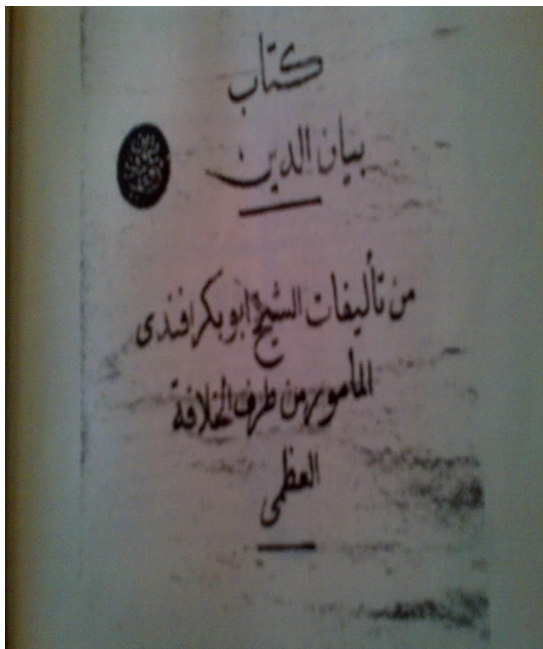 كتاب
بيان الدين
من تأليفات الشيخ ابو بكر افندى
المأمور من طرف الخلافة
العظمى